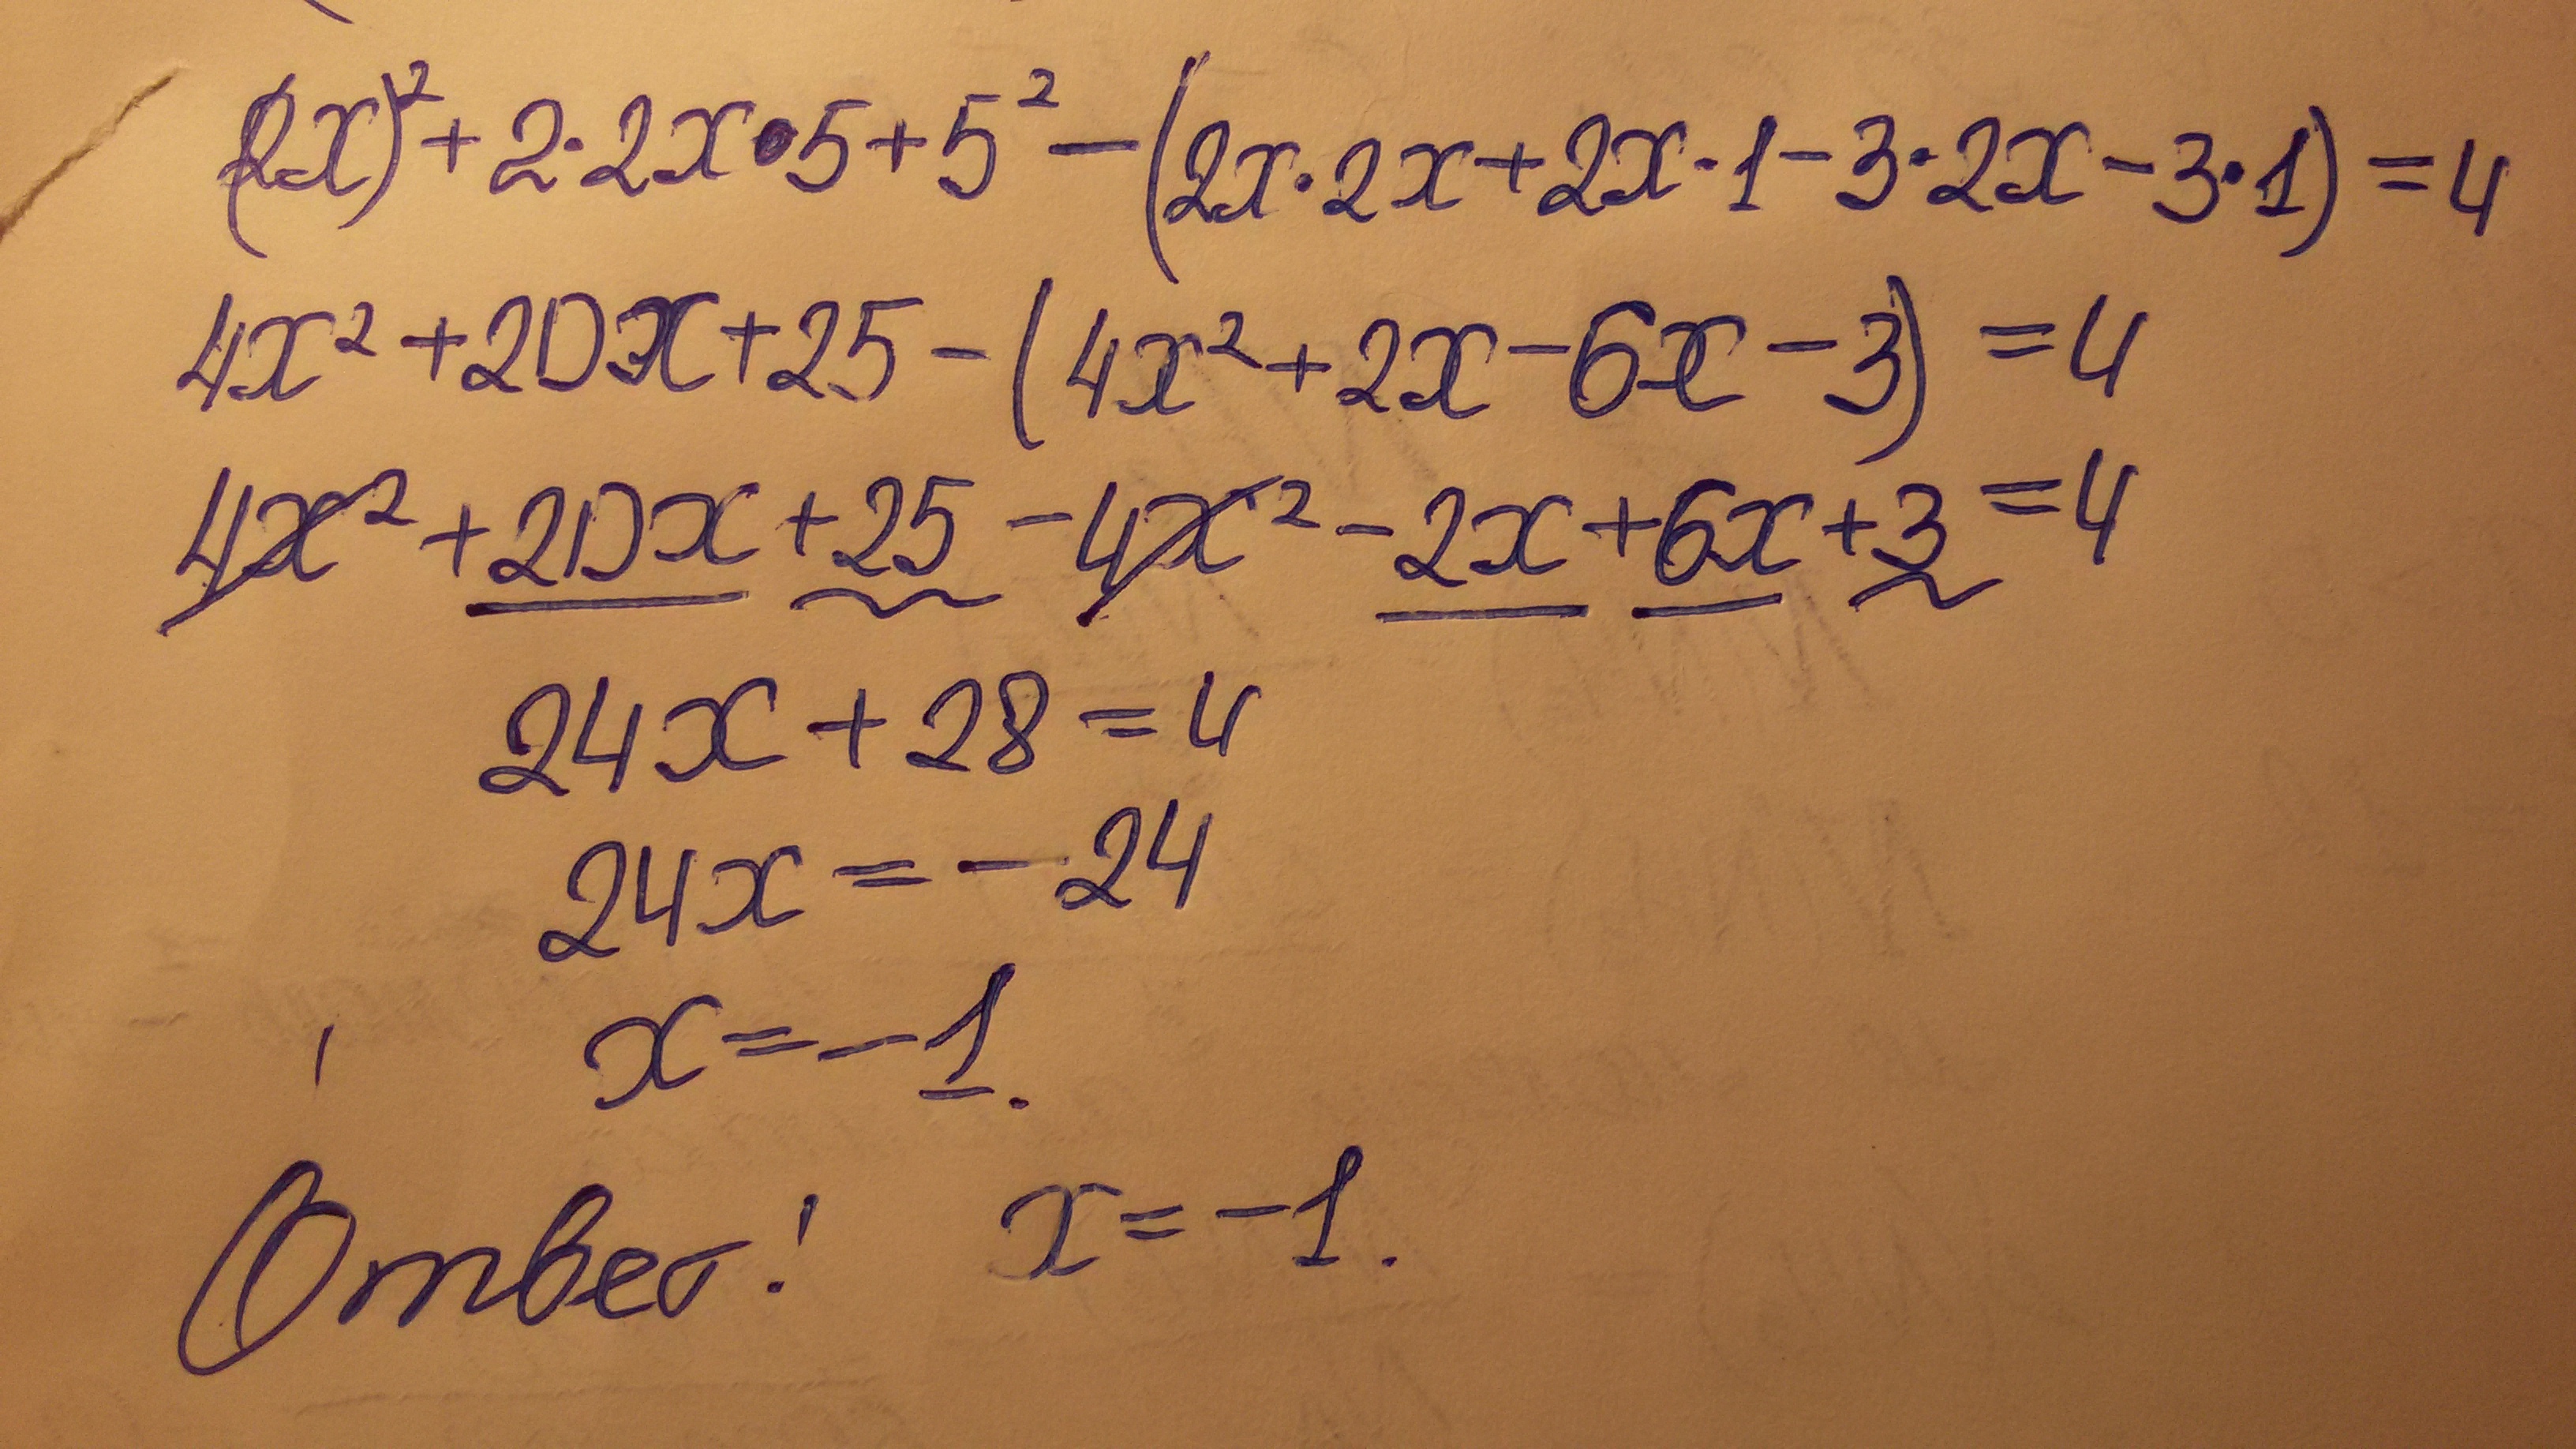 (2x)² + 2·2x·5 + 5² - (2x·2x + 2x·1 - 3·2x - 3·1) = 4
4x² + 20x + 25 - (4x² + 2x - 6x - 3) = 4
4x² + 20x + 25 - 4x² - 2x + 6x + 3 = 4
24x + 28 = 4
24x = - 24
x = -1.
Ответ! x = -1.